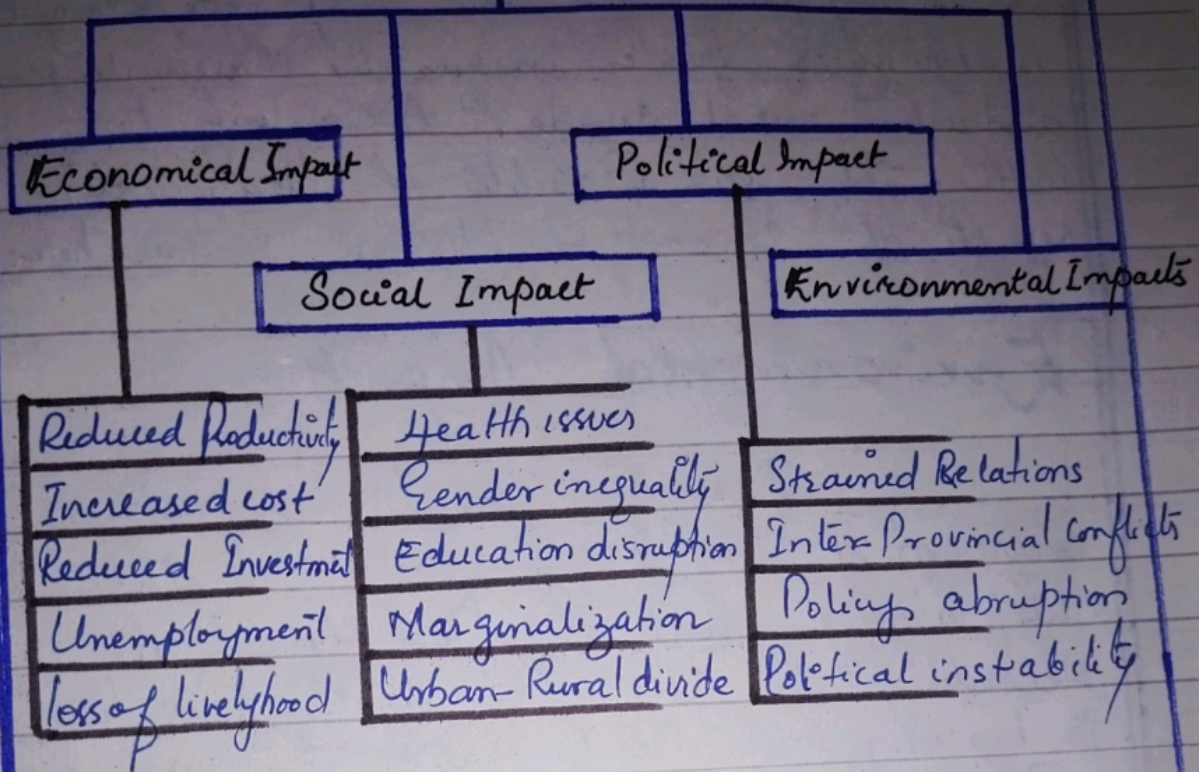 Economical Impact
Political Impact
Social Impact
Environmental Impacts
Reduced Productivity
Increased cost
Reduced Investmet
Unemployment
loss of livelyhood
Health issues
Gender inequality
Education disruption
Marginalization
Urban-Rural divide
Strained Relations
Inter Provincial conflicts
Policy abruption
Political instability